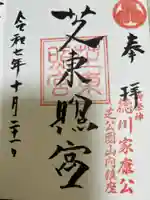 奉拝
徳川家康公
芝公園山内鎮座
芝東照宮
令和七年十月二十一日